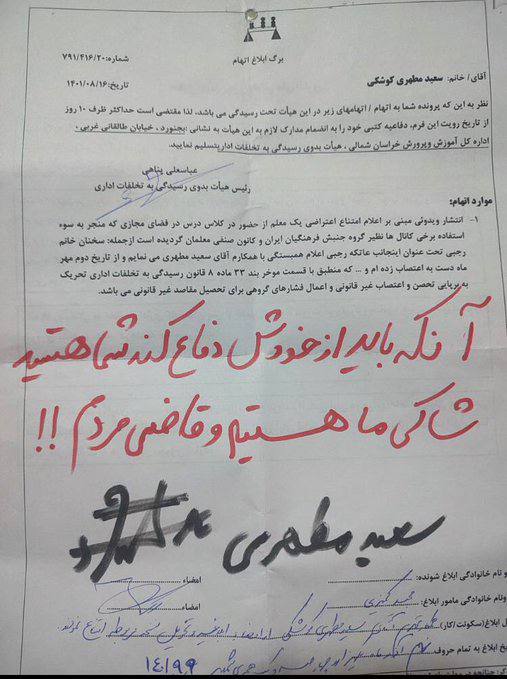 برگ ابلاغ اتهام
شماره: ۷۹۱/۴۱۶/۲۰
تاریخ: ۱۴۰۱/۰۸/۱۶
آقای / خانم: سعید مطهری کوشکی
نظر به این که پرونده شما به اتهام / اتهامهای زیر در این هیأت تحت رسیدگی می باشد، لذا مقتضی است حداکثر ظرف ۱۰ روز
از تاریخ رویت این فرم، دفاعیه کتبی خود را به انضمام مدارک لازم به این هیأت به نشانی : بجنورد ، خیابان طالقانی غربی ،
اداره کل آموزش وپرورش خراسان شمالی ، هیأت بدوی رسیدگی به تخلفات اداریتسلیم نمایید.
عباسعلی پناهی
رئیس هیأت بدوی رسیدگی به تخلفات اداری
موارد اتهام:
۱- انتشار ویدئوئی مبنی بر اعلام امتناع اعتراضی یک معلم از حضور در کلاس درس در فضای مجازی که منجر به سوء
استفاده برخی کانال ها نظیر گروه جنبش فرهنگیان ایران و کانون صنفی معلمان گردیده است ازجمله: سخنان خانم
رجبی تحت عنوان اینجانب عاتکه رجبی اعلام همبستگی با همکارم آقای سعید مطهری می نمایم و از تاریخ دوم مهر
ماه دست به اعتصاب زده ام و ... که منطبق با قسمت موخر بند ۳۳ ماده ۸ قانون رسیدگی به تخلفات اداری تحریک
به برپایی تحصن و اعتصاب غیر قانونی و اعمال فشارهای گروهی برای تحصیل مقاصد غیر قانونی می باشد.
آنکه باید از خودش دفاع کند شما هستید
شاکی ما هستیم و قاضی مردم !!
سعید مطهری
و نام خانوادگی ابلاغ شونده:
امضاء
ونام خانوادگی مامور ابلاغ:
امضاء
ل ابلاغ(سکونت/کار)
یخ ابلاغ به تمام حروف